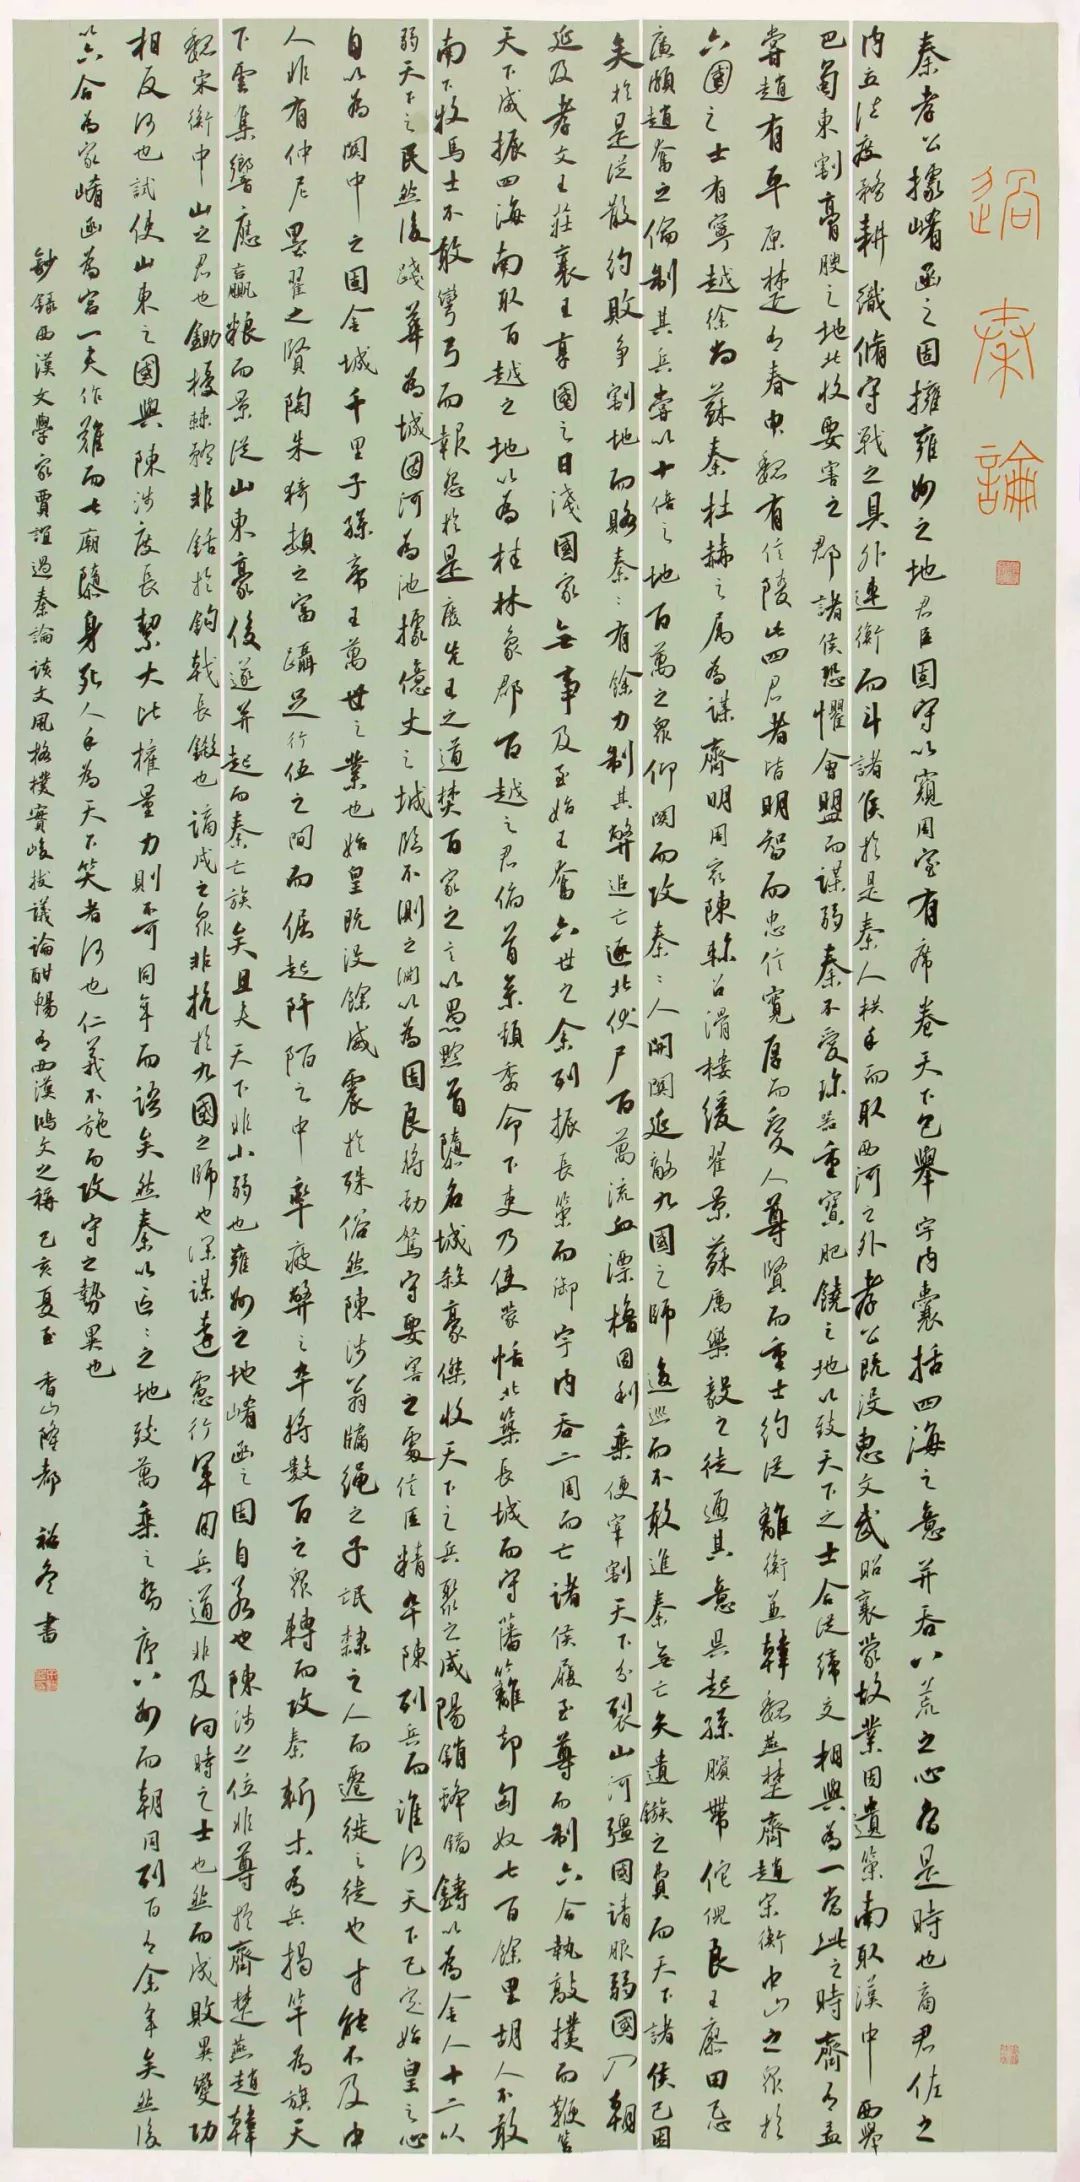 過秦論
秦孝公據崤函之固擁雍州之地君臣固守以窺周室有席卷天下包舉宇內囊括四海之意并吞八荒之心當是時也商君佐之
內立法度務耕織脩守戰之具外連衡而斗諸侯於是秦人拱手而取西河之外孝公既沒惠文武昭襄蒙故業因遺策南取漢中西舉
巴蜀東割膏腴之地北收要害之郡諸侯恐懼會盟而謀弱秦不愛珍器重寶肥饒之地以致天下之士合從締交相與為一當此之時齊有孟
嘗趙有平原楚有春申魏有信陵此四君者皆明智而忠信寬厚而愛人尊賢而重士約從離衡兼韓魏燕楚齊趙宋衛中山之眾於
六國之士有寧越徐尚蘇秦杜赫之屬為謀齊明周最陳軫召滑樓緩翟景蘇厲樂毅之徒通其意吳起孫臏帶佗倪良王廖田忌
廉頗趙奢之倫制其兵嘗以十倍之地百萬之眾仰關而攻秦〻人開關延敵九國之師逡巡而不敢進秦無亡矢遺鏃之費而天下諸侯已困
矣於是從散約敗爭割地而賂秦〻有餘力制其弊追亡逐北伏尸百萬流血漂櫓因利乘便宰割天下分裂山河彊國請服弱國入朝
延及孝文王莊襄王享國之日淺國家無事及至始王奮六世之余列振長策而御宇內吞二周而亡諸侯履至尊而制六合執敲撲而鞭笞
天下威振四海南取百越之地以為桂林象郡百越之君俯首系頸委命下吏乃使蒙恬北築長城而守藩籬卻匈奴七百餘里胡人不敢
南下牧馬士不敢彎弓而報怨於是廢先王之道焚百家之言以愚黔首隳名城殺豪傑收天下之兵聚之咸陽銷鋒鏑鑄以為金人十二以
弱天下之民然後踐華為城因河為池據億丈之城臨不測之淵以為固良將勁弩守要害之處信臣精卒陳列兵而誰何天下已定始皇之心
自以為關中之固金城千里子孫帝王萬世之業也始皇既沒餘威震於殊俗然陳涉翁牖繩之子氓隸之人而遷徙之徒也才能不及中
人非有仲尼墨翟之賢陶朱猗頓之富躡足行伍之間而倔起阡陌之中率疲弊之卒將數百之眾轉而攻秦斬木為兵揭竿為旗天
下雲集響應贏糧而景從山東豪俊遂并起而秦亡族矣且夫天下非小弱也雍州之地崤函之固自若也陳涉之位非尊於齊楚燕趙韓
魏宋衛中山之君也鋤櫌棘矜非銛於鉤戟長鎩也謫戍之眾非抗於九國之師也深謀遠慮行軍用兵道非及向時之士也然而成敗異變功
相反何也試使山東之國與陳涉度長絜大比權量力則不可同年而語矣然秦以區〻之地致萬乘之勢序八州而朝同列百有余年矣然後
以六合為家崤函為宮一夫作難而七廟隳身死人手為天下笑者何也仁義不施而攻守之勢異也
鈔錄西漢文學家賈誼過秦論該文風格樸實峻拔議論酣暢有西漢鴻文之稱己亥夏至香山隆都裕冬書